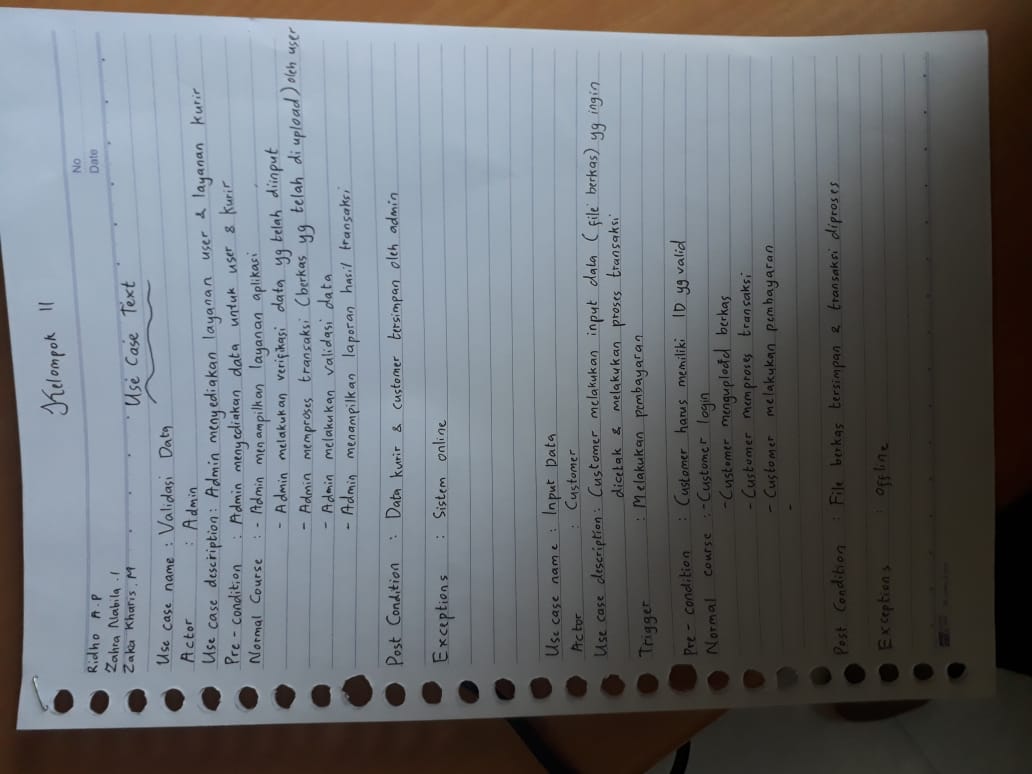 Kelompok 11
No
Date
Ridho A.P
Zahra Nabila.I
Zaka Kharis.M
Use Case Text
Use case name : Validasi Data
Actor : Admin
Use case description : Admin menyediakan layanan user & layanan kurir
Pre-condition : Admin menyediakan data untuk user & kurir
Normal Course : - Admin menampilkan layanan aplikasi
- Admin melakukan verifikasi data yg telah diinput
- Admin memproses transaksi (berkas yg telah di upload) oleh user
- Admin melakukan validasi data
- Admin menampilkan laporan hasil transaksi
Post Condition : Data kurir & customer tersimpan oleh admin
Exceptions : Sistem online
Use case name : Input Data
Actor : Customer
Use case description : Customer melakukan input data (file berkas) yg ingin
dicetak & melakukan proses transaksi
Trigger : Melakukan pembayaran
Pre-condition : Customer harus memiliki ID yg valid
Normal course : - Customer login
- Customer mengupload berkas
- Customer memproses transaksi
- Customer melakukan pembayaran
-
Post Condition : File berkas tersimpan & transaksi diproses
Exceptions : offline